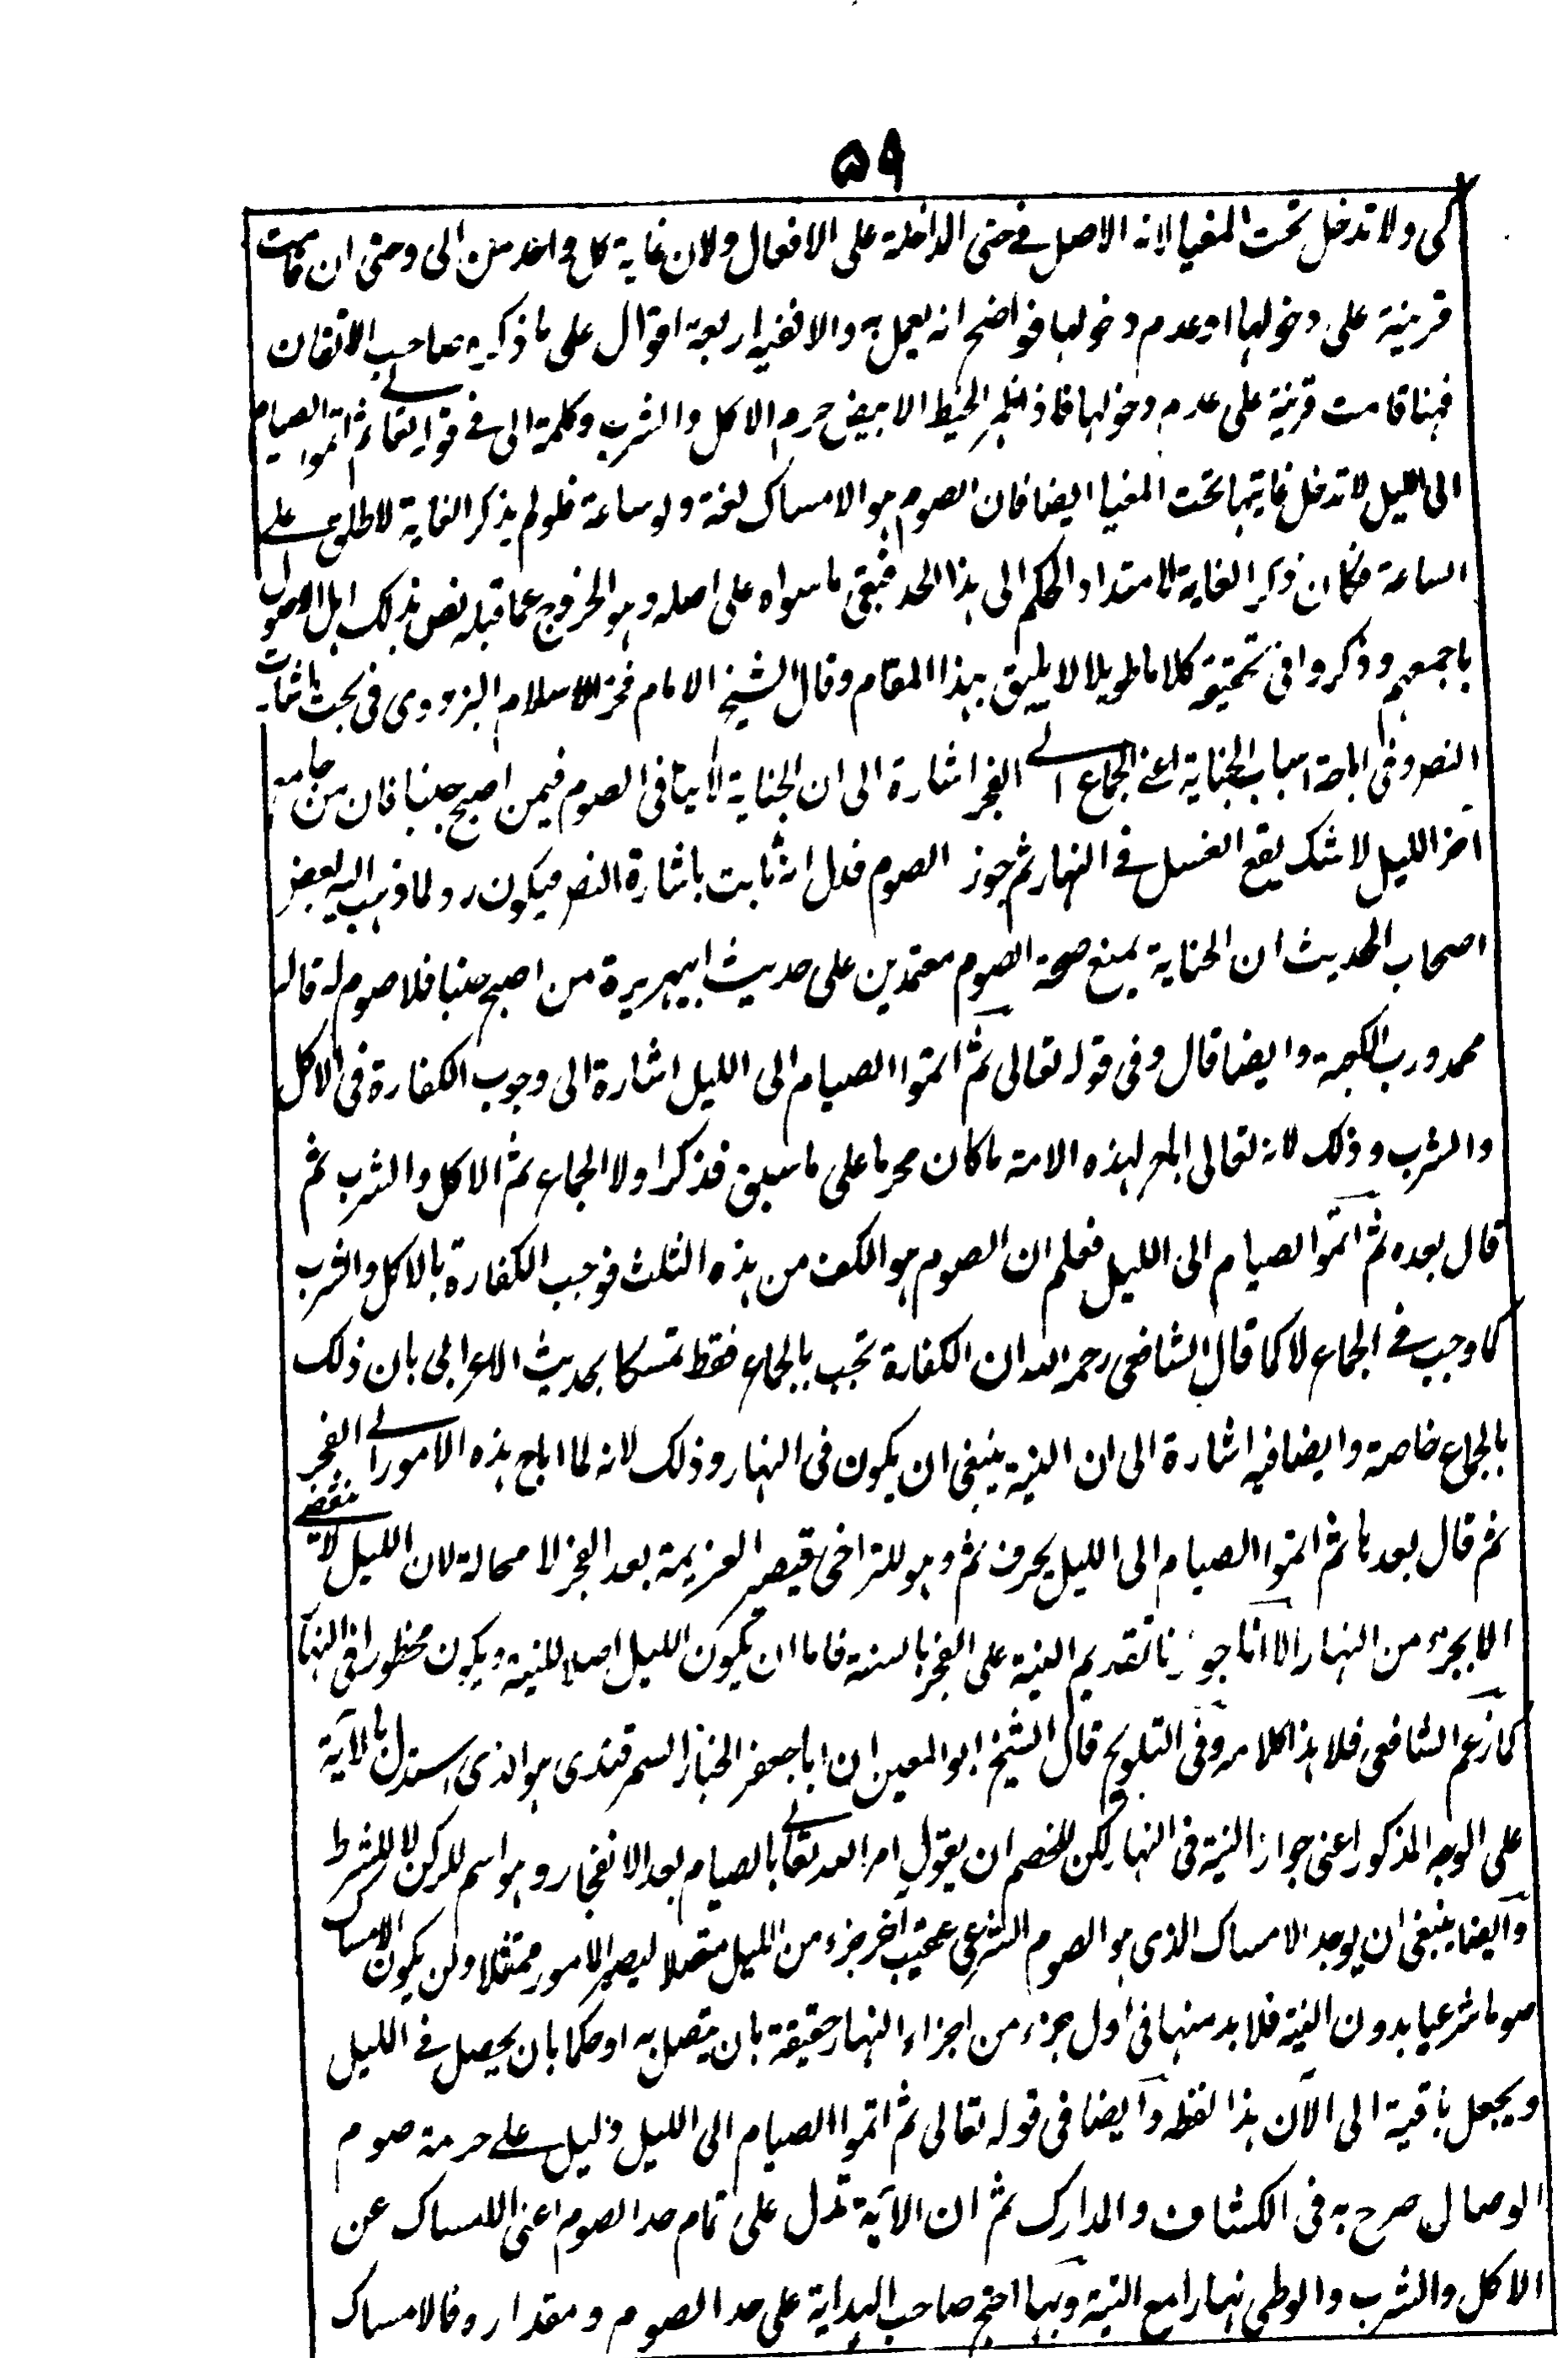 ٥٩
كى ولا تدخل تحت المغيا لانه الاصل فے حتى الداخلة على الافعال ولان غاية كل واحد من الى وحتى ان قامت
قرينة على دخولها او عدم دخولها فواضح انه يعمل به والا ففيه اربعة اقوال على ما ذكره صاحب الاتقان
فهنا قامت قرينة على عدم دخولها فاذ الخيط الابيض حرم الاكل والشرب وكلمة الى فے قوله تعالے ثم اتموا الصيام
الى الليل لا تدخل غايتها تحت المغيا ايضا فان الصوم هو الامساك لغة ولو ساعة فلو لم يذكر الغاية لاطلق علے
الساعة فكان ذكر الغاية لامتداد الحكم الى هذا الحد فبقى ما سواه على اصله وهو الخروج عما قبله نص بذلك اهل الاصول
باجمعهم وذكروا فى تحقيقه كلاما طويلا لا يليق بهذا المقام وقال الشيخ الامام فخر الاسلام البزدوى فى بحث اشارت
النص وفى اباحة اسباب الجنابة اعنے الجماع الے الفجر اشارة الى ان الجنابة لا ينافى الصوم فيمن اصبح جنبا فان من جامع
آخر الليل لا شك يقع الغسل فے النهار ثم جوز الصوم فدل انه ثابت باشارة النص فيكون رد لما ذهب اليه بعض
اصحاب الحديث ان الجنابة يمنع صحة الصوم معتمدين على حديث ابيهريرة من اصبح جنبا فلا صوم له قاله
محمد ورب الكعبة وايضا قال وفى قوله تعالى ثم اتموا الصيام الى الليل اشارة الى وجوب الكفارة فى الاكل
والشرب وذلك لانه تعالى اباح لهذه الامة ما كان محرما على ما سبق فذكر اولا الجماع ثم الاكل والشرب ثم
قال بعده ثم اتموا الصيام الى الليل فعلم ان الصوم هو الكف من هذه الثلث فوجب الكفارة بالاكل والشرب
كما وجب فے الجماع لا كما قال الشافعى رحمه الله ان الكفارة تجب بالجماع فقط تمسكا بحديث الاعرابى بان ذلك
بالجماع خاصة وايضا فيه اشارة الى ان النية ينبغى ان يكون فى النهار وذلك لانه لما اباح هذه الامور الے الفجر
ثم قال بعدها ثم اتموا الصيام الى الليل بحرف ثم وهو للتراخى فيصير العزيمة بعد الفجر لا محالة لان الليل لا تنقضے
الا بجزء من النهار الا انا جوزنا تقديم النية على الفجر بالسنة فاما ان يكون الليل اصلا للنية ويكون محظورا فى النهار
كما زعم الشافعى فلا هذا كلامه وفى التلويح قال الشيخ ابو المعين ان ابا جعفر الخباز السمرقندى هو الذى استدل بالآية
على الوجه المذكور اعنى جواز النية فى النهار لكن للخصم ان يقول امر الله تعالے بالصيام بعد الانفجار وهو اسم للركن لا للشرط
وايضا ينبغى ان يوجد الامساك الذى هو الصوم الشرعى عقيب آخر جزء من الليل متصلا ليصير المامور ممتثلا ولن يكون الامساك
صوما شرعيا بدون النية فلا بد منها فى اول جزء من اجزاء النهار حقيقة بان يتصل به او حكما بان يحصل فے الليل
ويجعل باقية الى الآن هذا لفظه وايضا فى قوله تعالى ثم اتموا الصيام الى الليل دليل علے حرمة صوم
الوصال صرح به فى الكشاف والمدارك ثم ان الآية تدل على تمام حد الصوم اعنى الامساك عن
الاكل والشرب والوطى نهارا مع النية وبها احتج صاحب الهداية على حد الصوم ومقداره فالامساك